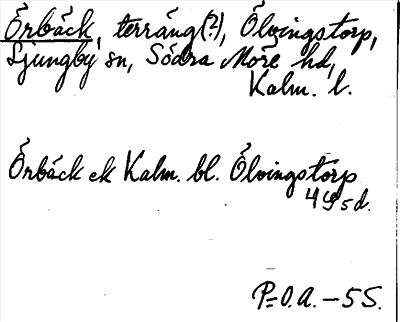 Örbäck, terräng(?), Ölvingstorp,
Ljungby sn, Södra Möre hd,
Kalm. l.
Örbäck ek Kalm. bl. Ölvingstorp
4 g 5 d.
P=O.A. – 5S.